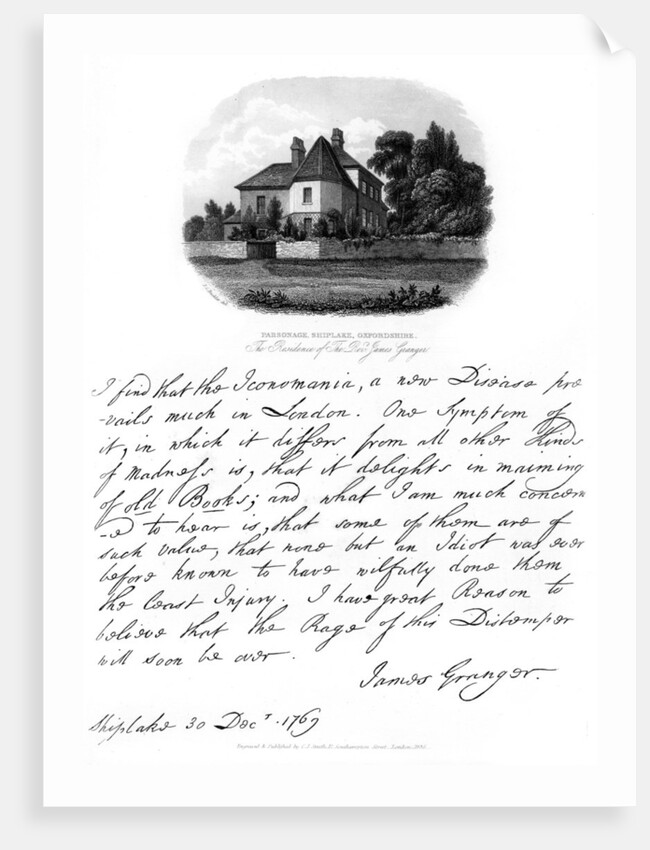 PARSONAGE, SHIPLAKE, OXFORDSHIRE.
The Residence of The Revd. James Granger
I find that the Iconomania, a new Disease pre
-vails much in London. One Symptom of
it, in which it differs from all other Kinds
of Madness is, that it delights in maiming
of old Books; and what I am much concern
-ed to hear is, that some of them are of
such value, that none but an Idiot was ever
before known to have wilfully done them
the least Injury. I have great Reason to
believe that the Rage of this Distemper
will soon be over.
James Granger.
Shiplake 30 Decr. 1769
Engraved & Published by C. J. Smith, Southampton Street, London,